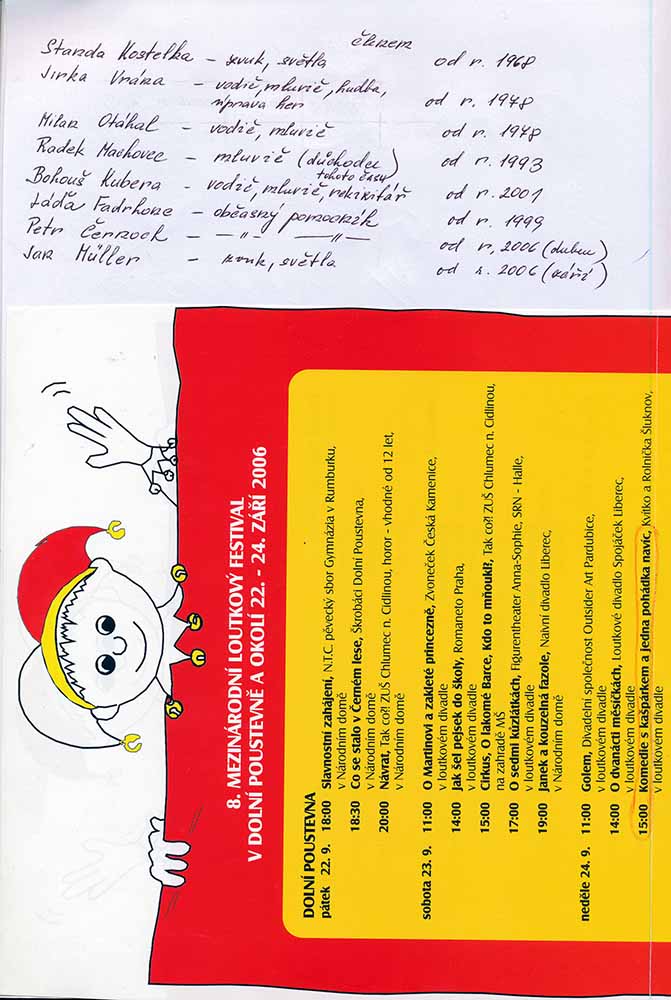 členem
Standa Kostelka – zvuk, světla od r. 1968
Jirka Vrána – vodič, mluvič, hudba,
úprava her od r. 1978
Milan Otáhal – vodič, mluvič od r. 1978
Radek Machovec – mluvič (důchodce od r. 1993
tohoto času)
Bohouš Kubera – vodič, mluvič, rekvizitář od r. 2001
Láďa Fadrhonc – občasný pomocník od r. 1999
Petr Černoch – –"– –"– od r. 2006 (duben)
Jan Müller – zvuk, světla od r. 2006 (září)
8. MEZINÁRODNÍ LOUTKOVÝ FESTIVAL
V DOLNÍ POUSTEVNĚ A OKOLÍ 22. - 24. ZÁŘÍ 2006
DOLNÍ POUSTEVNA
pátek 22. 9. 18:00 Slavnostní zahájení, N.T.C. pěvecký sbor Gymnázia v Rumburku,
v Národním domě
18:30 Co se stalo v Černém lese, Škrobáci Dolní Poustevna,
v Národním domě
20:00 Návrat, Tak co?! ZUŠ Chlumec n. Cidlinou, horor - vhodné od 12 let,
v Národním domě
sobota 23. 9. 11:00 O Martinovi a zakleté princezně, Zvoneček Česká Kamenice,
v loutkovém divadle
14:00 Jak šel pejsek do školy, Romaneto Praha,
v loutkovém divadle
15:00 Cirkus, O lakomé Barce, Kdo to mňouk!?, Tak co?! ZUŠ Chlumec n. Cidlinou,
na zahradě MŠ
17:00 O sedmi kůzlátkách, Figurentheater Anna-Sophie, SRN - Halle,
v loutkovém divadle
19:00 Janek a kouzelná fazole, Naivní divadlo Liberec,
v Národním domě
neděle 24. 9. 11:00 Golem, Divadelní společnost Outsider Art Pardubice,
v loutkovém divadle
14:00 O dvanácti měsíčkách, Loutkové divadlo Spojáček Liberec,
v loutkovém divadle
15:00 Komedie s kašpárkem a jedna pohádka navíc, Kvítko a Rolnička Šluknov,
v loutkovém divadle